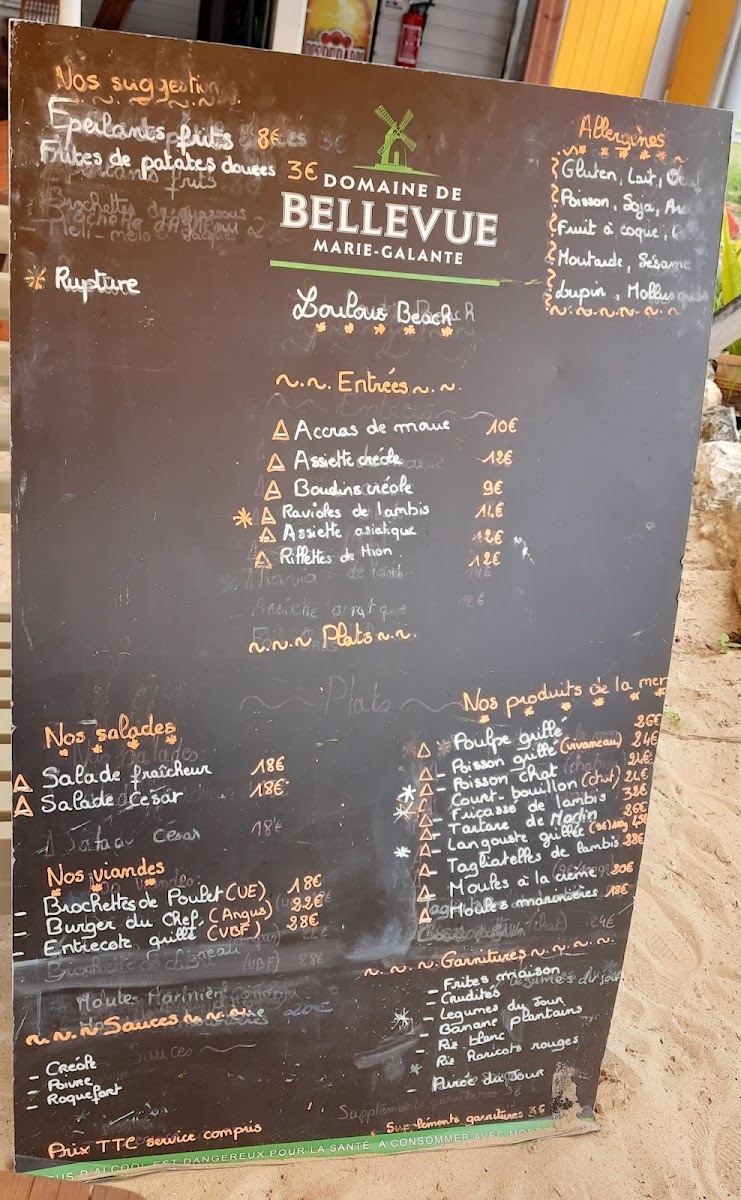 Nos suggestion
Eperlants frits 8€
Frites de patates douces 3€
Rupture
DOMAINE DE
BELLEVUE
MARIE-GALANTE
Loulous Beach
Allergènes
Gluten, Lait,
Poisson, Soja,
Fruit à coque,
Moutarde, Sésame
Lupin, Mollusques
~.~. Entrées ~.~.
Accras de morue 10€
Assiette créole 12€
Boudins créole 9€
Ravioles de lambis 14€
Assiette asiatique 12€
Rillettes de thon 12€
~.~.~ Plats ~.~.
Nos salades
Salade fraîcheur 18€
Salade César 18€
Nos viandes
- Brochettes de Poulet (UE) 18€
- Burger du Chef (Angus) 22€
- Entrecote grillé (VBF) 28€
~.~.~ Sauces
- Créole
- Poivre
- Roquefort
Nos produits de la mer
- Poulpe grillé 26€
- Poisson grillé (vivaneau) 24€
- Poisson chat 24€
- Court-bouillon (chat) 24€
- Fricassé de lambis 32€
- Tartare de Marlin 26€
- Langouste grillée (9€) 100g 45€
- Tagliatelles de lambis 28€
- Moules à la crème 20€
- Moules marinières 18€
~.~.~. Garnitures ~.~.~.~.
- Frites maison
- Crudités
- Legumes du Jour
- Banane plantains
- Riz blanc
- Riz Haricots rouges
- Purée du Jour
Suppléments garnitures 3€
Prix TTC service compris
D'ALCOOL EST DANGEREUX POUR LA SANTÉ, A CONSOMMER AVEC